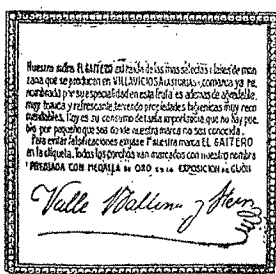 Nuestra sidra EL GAITERO extraida de las mas selectas clases de man
zana que se producen en VILLAVICIOSA (ASTURIAS), comarca ya re
nombrada por su especialidad en esta fruta es ademas de agradable,
muy tonica y refrescante, teniendo propiedades higienicas muy reco
mendables. Hoy es su consumo de tanta importancia que no hay pue
blo por pequeño que sea donde nuestra marca no sea conocida.
Para evitar falsificaciones exijase nuestra marca EL GAITERO
en la etiqueta. Todos los corchos van marcados con nuestro nombre
PREMIADA CON MEDALLA DE ORO EN LA EXPOSICION DE GIJON
Valle Ballina y Fern